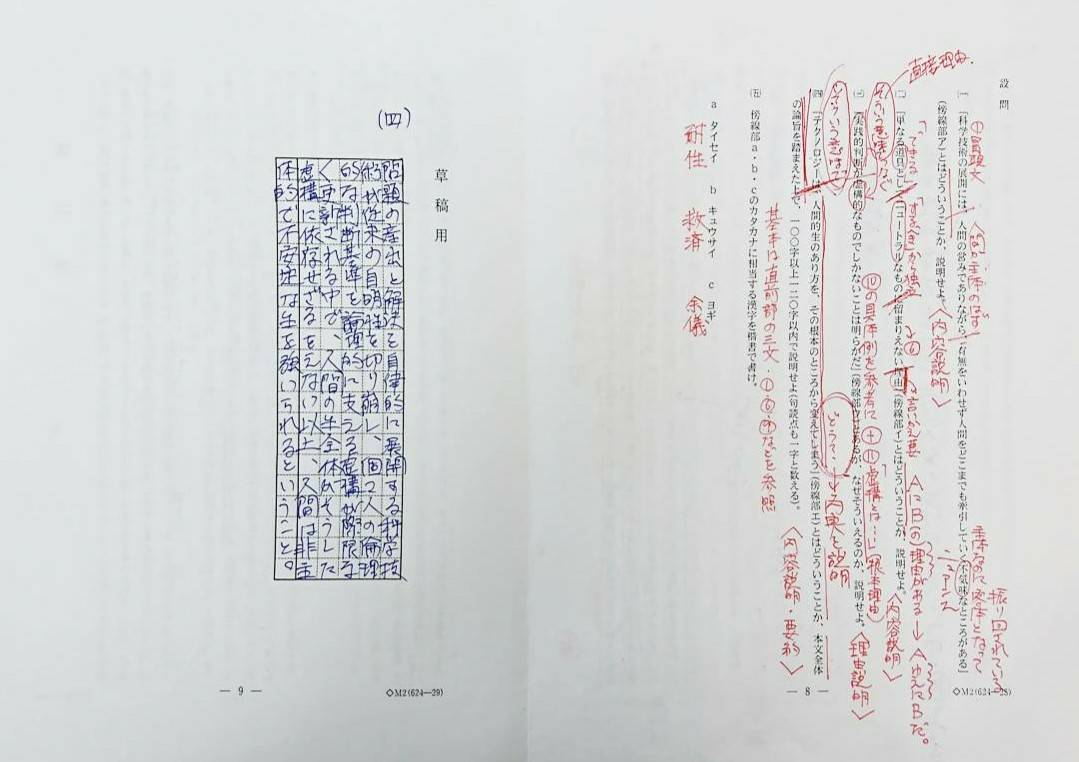 設問
(一)「科学技術の展開には、人間の営みでありながら、有無をいわせず人間をどこまでも牽引していく不気味なところがある」
(傍線部ア)とはどういうことか、説明せよ。
(二)「単なる道具としてニュートラルなものに留まりえない理由」(傍線部イ)とはどういうことか、説明せよ。
(三)「実践的判断が虚構的なものでしかないことは明らかだ」(傍線部ウ)とあるが、なぜそういえるのか、説明せよ。
(四)「テクノロジーは人間的生のあり方を、その根本のところから変えてしまう」(傍線部エ)とはどういうことか、本文全体
の論旨を踏まえた上で、一〇〇字以上一二〇字以内で説明せよ(句読点も一字と数える)。
(五) 傍線部a・b・cのカタカナに相当する漢字を楷書で書け。
a タイセイ b キュウサイ c ヨギ
耐性 救済 余儀
直接理由
①冒頭文
人間が主体のはず
主体なのに客体となって
振り回されている
ニュアンス
〈内容説明〉
「できる」
「すべき」から独立
は言いかえ要
AにB(の)理由がある→AゆえにBだ。
〈内容説明〉
そういう意味で
⑩の具体例を参考に
+⑪虚構とは…」(根本理由)
〈理由説明〉
どうして…
→内実を説明
基本は直前部の三文・
などを参照
〈内容説明・要約〉
— 8 —
◇M2(624—28)
草稿用
(四)
問題の産出と解決を自律的に展開する科学技
術が従来の自明性を切り崩し、個々人の倫理
的な判断基準を論理的に支える虚構が際限な
く更新される中で、人間の生全体がそうした
虚構に依存せざるをえない以上、人間は非主
体的で不安定な生を強いられるということ。
— 9 —
◇M2(624—29)